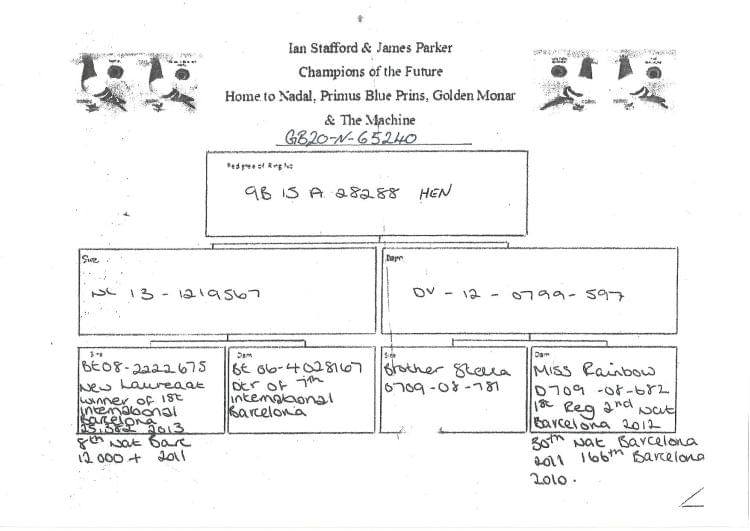 Ian Stafford & James Parker
Champions of the Future
Home to Nadal, Primus Blue Prins, Golden Monar
& The Machine
GB20-N-65240
Pedigree of Ring No
GB 15 A 28288 HEN
Sire
NL 13 - 1219567
Dam
DV - 12 - 0799 - 597
Sire
BE08-2222675
New Laureaat
winner of 1st
International
Barcelona
25,382 2013
8th Nat Barc
12 000 + 2011
Dam
BE 06-4028167
Dtr of 7th
international
Barcelona
Sire
Brother Stella
0709-08-781
Dam
Miss Rainbow
D709 -08-682
1st Reg 2nd Nat
Barcelona 2012
30th Nat Barcelona
2011 166th Barcelona
2010.